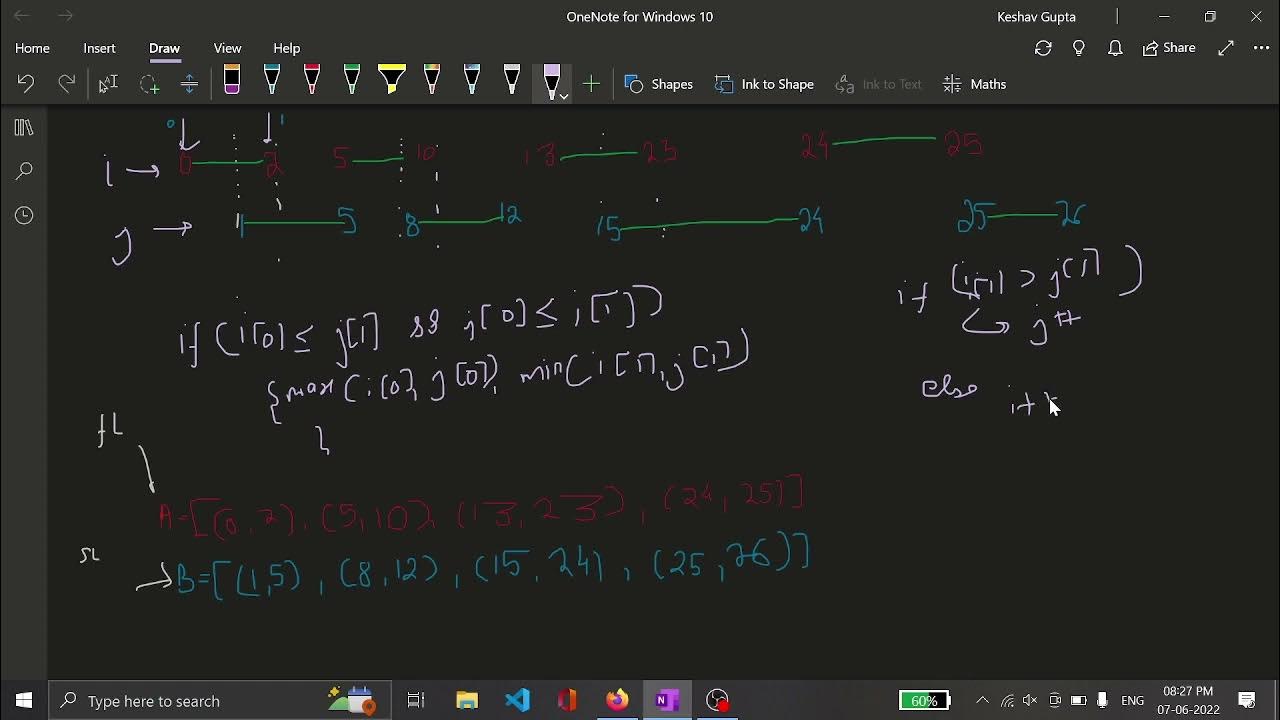 OneNote for Windows 10
Keshav Gupta
Home Insert Draw View Help
Share
Shapes Ink to Shape Ink to Text Maths
0 1
i → 0 2 5 10 13 23 24 25
j → 1 5 8 12 15 24 25 26
if (i[0] ≤ j[1] && j[0] ≤ i[1])
{max(i[0], j[0]), min(i[1], j[1])
}
if (i[1] > j[1])
j++
else i++
fL
A=[(0,2), (5,10), (13,23), (24,25)]
SL
→ B=[(1,5), (8,12), (15,24), (25,26)]
Type here to search
60%
ENG
08:27 PM
07-06-2022